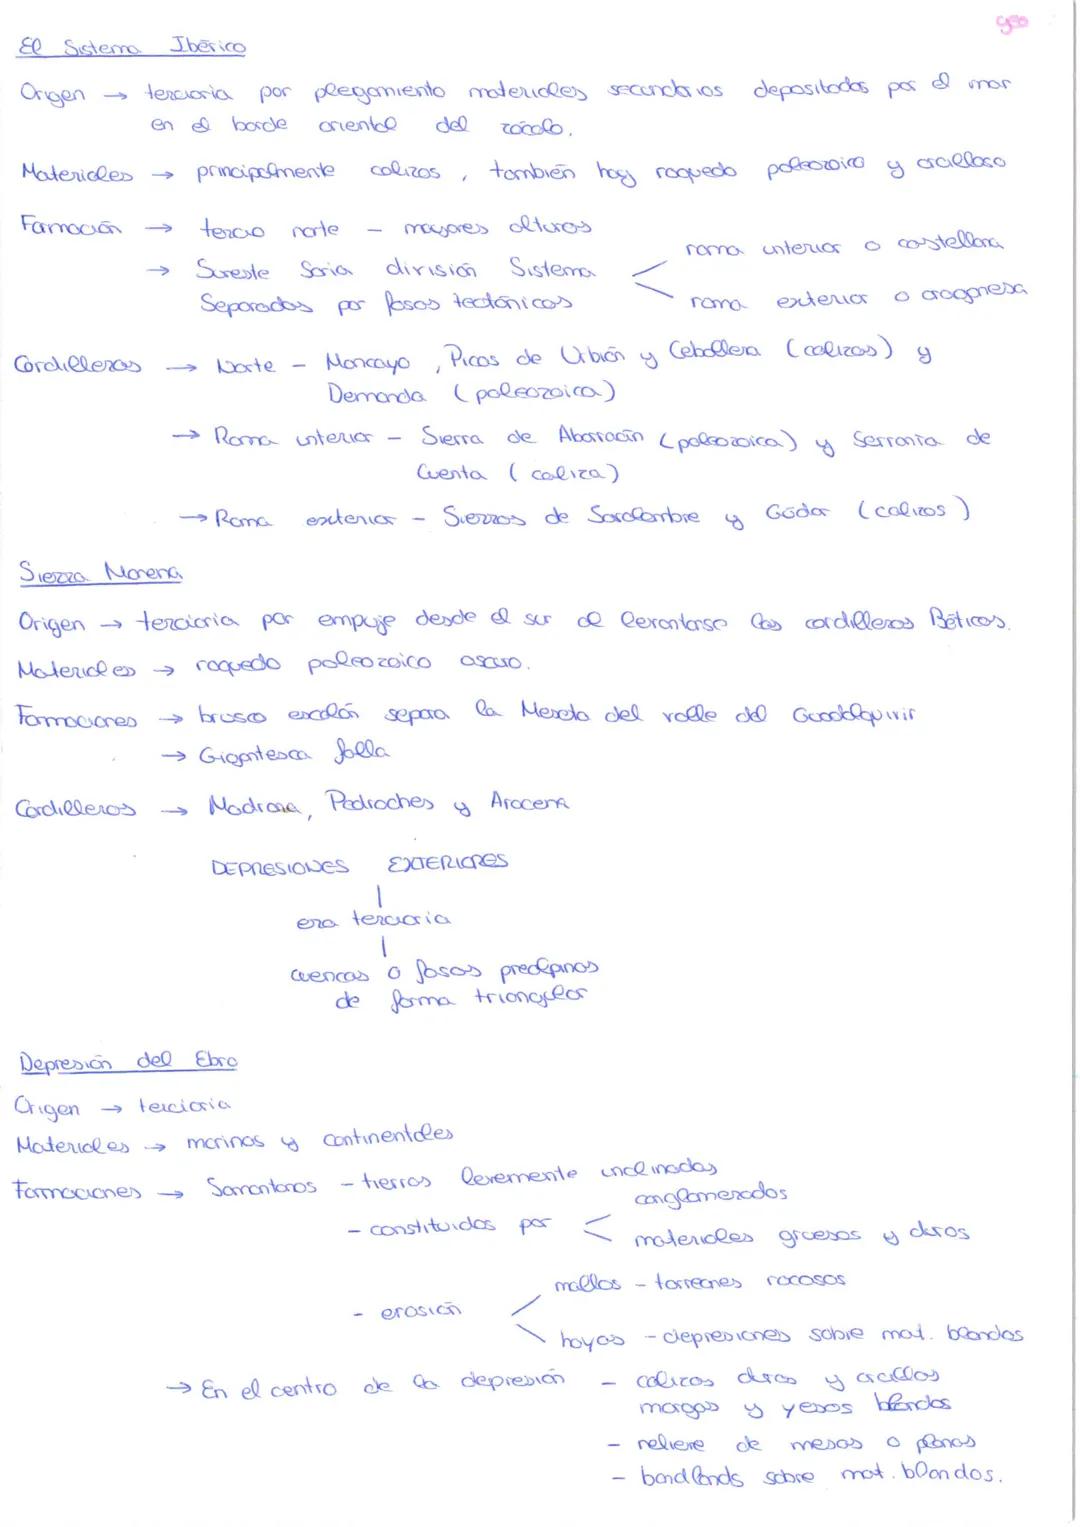 geo
El Sistema Ibérico
Origen → terciaria por plegamiento materiales secundarios depositados por el mar
en el borde oriental del zócalo.
Materiales → principalmente calizas, también hay roquedo paleozoico y arcilloso
Formación → tercio norte - mayores alturas
→ Sureste Soria división Sistema < rama interior o castellana
Separados por fosas tectónicas rama exterior o aragonesa
Cordilleras → Norte - Moncayo, Picos de Urbión y Cebollera (calizas) y
Demanda (paleozoica)
→ Rama interior - Sierra de Abarracín (paleozoica) y Serranía de
Cuenta (caliza)
→ Rama exterior - Sierras de Saralambre y Gúdar (calizas)
Sierra Morena
Origen → terciaria por empuje desde el sur al levantarse las cordilleras Béticas.
Materiales → roquedo paleozoico oscuro.
Formaciones → brusco escalón separa la Meseta del valle del Guadalquivir
→ Gigantesca falla
Cordilleras → Madrona, Pedroches y Aracena
DEPRESIONES EXTERIORES
|
era terciaria
|
cuencas o fosas prealpinas
de forma triangular
Depresión del Ebro
Origen → terciaria
Materiales → marinos y continentales
Formaciones → Somontanos - tierras levemente inclinadas
- constituidos por < conglomerados
materiales gruesos y duros
- erosión < mallos - torreones rocosos
hoyas - depresiones sobre mat. blandos
→ En el centro de la depresión - calizas duras y arcillas
margas y yesos blandos
- relieve de mesas o planas
- badlands sobre mat. blandos.